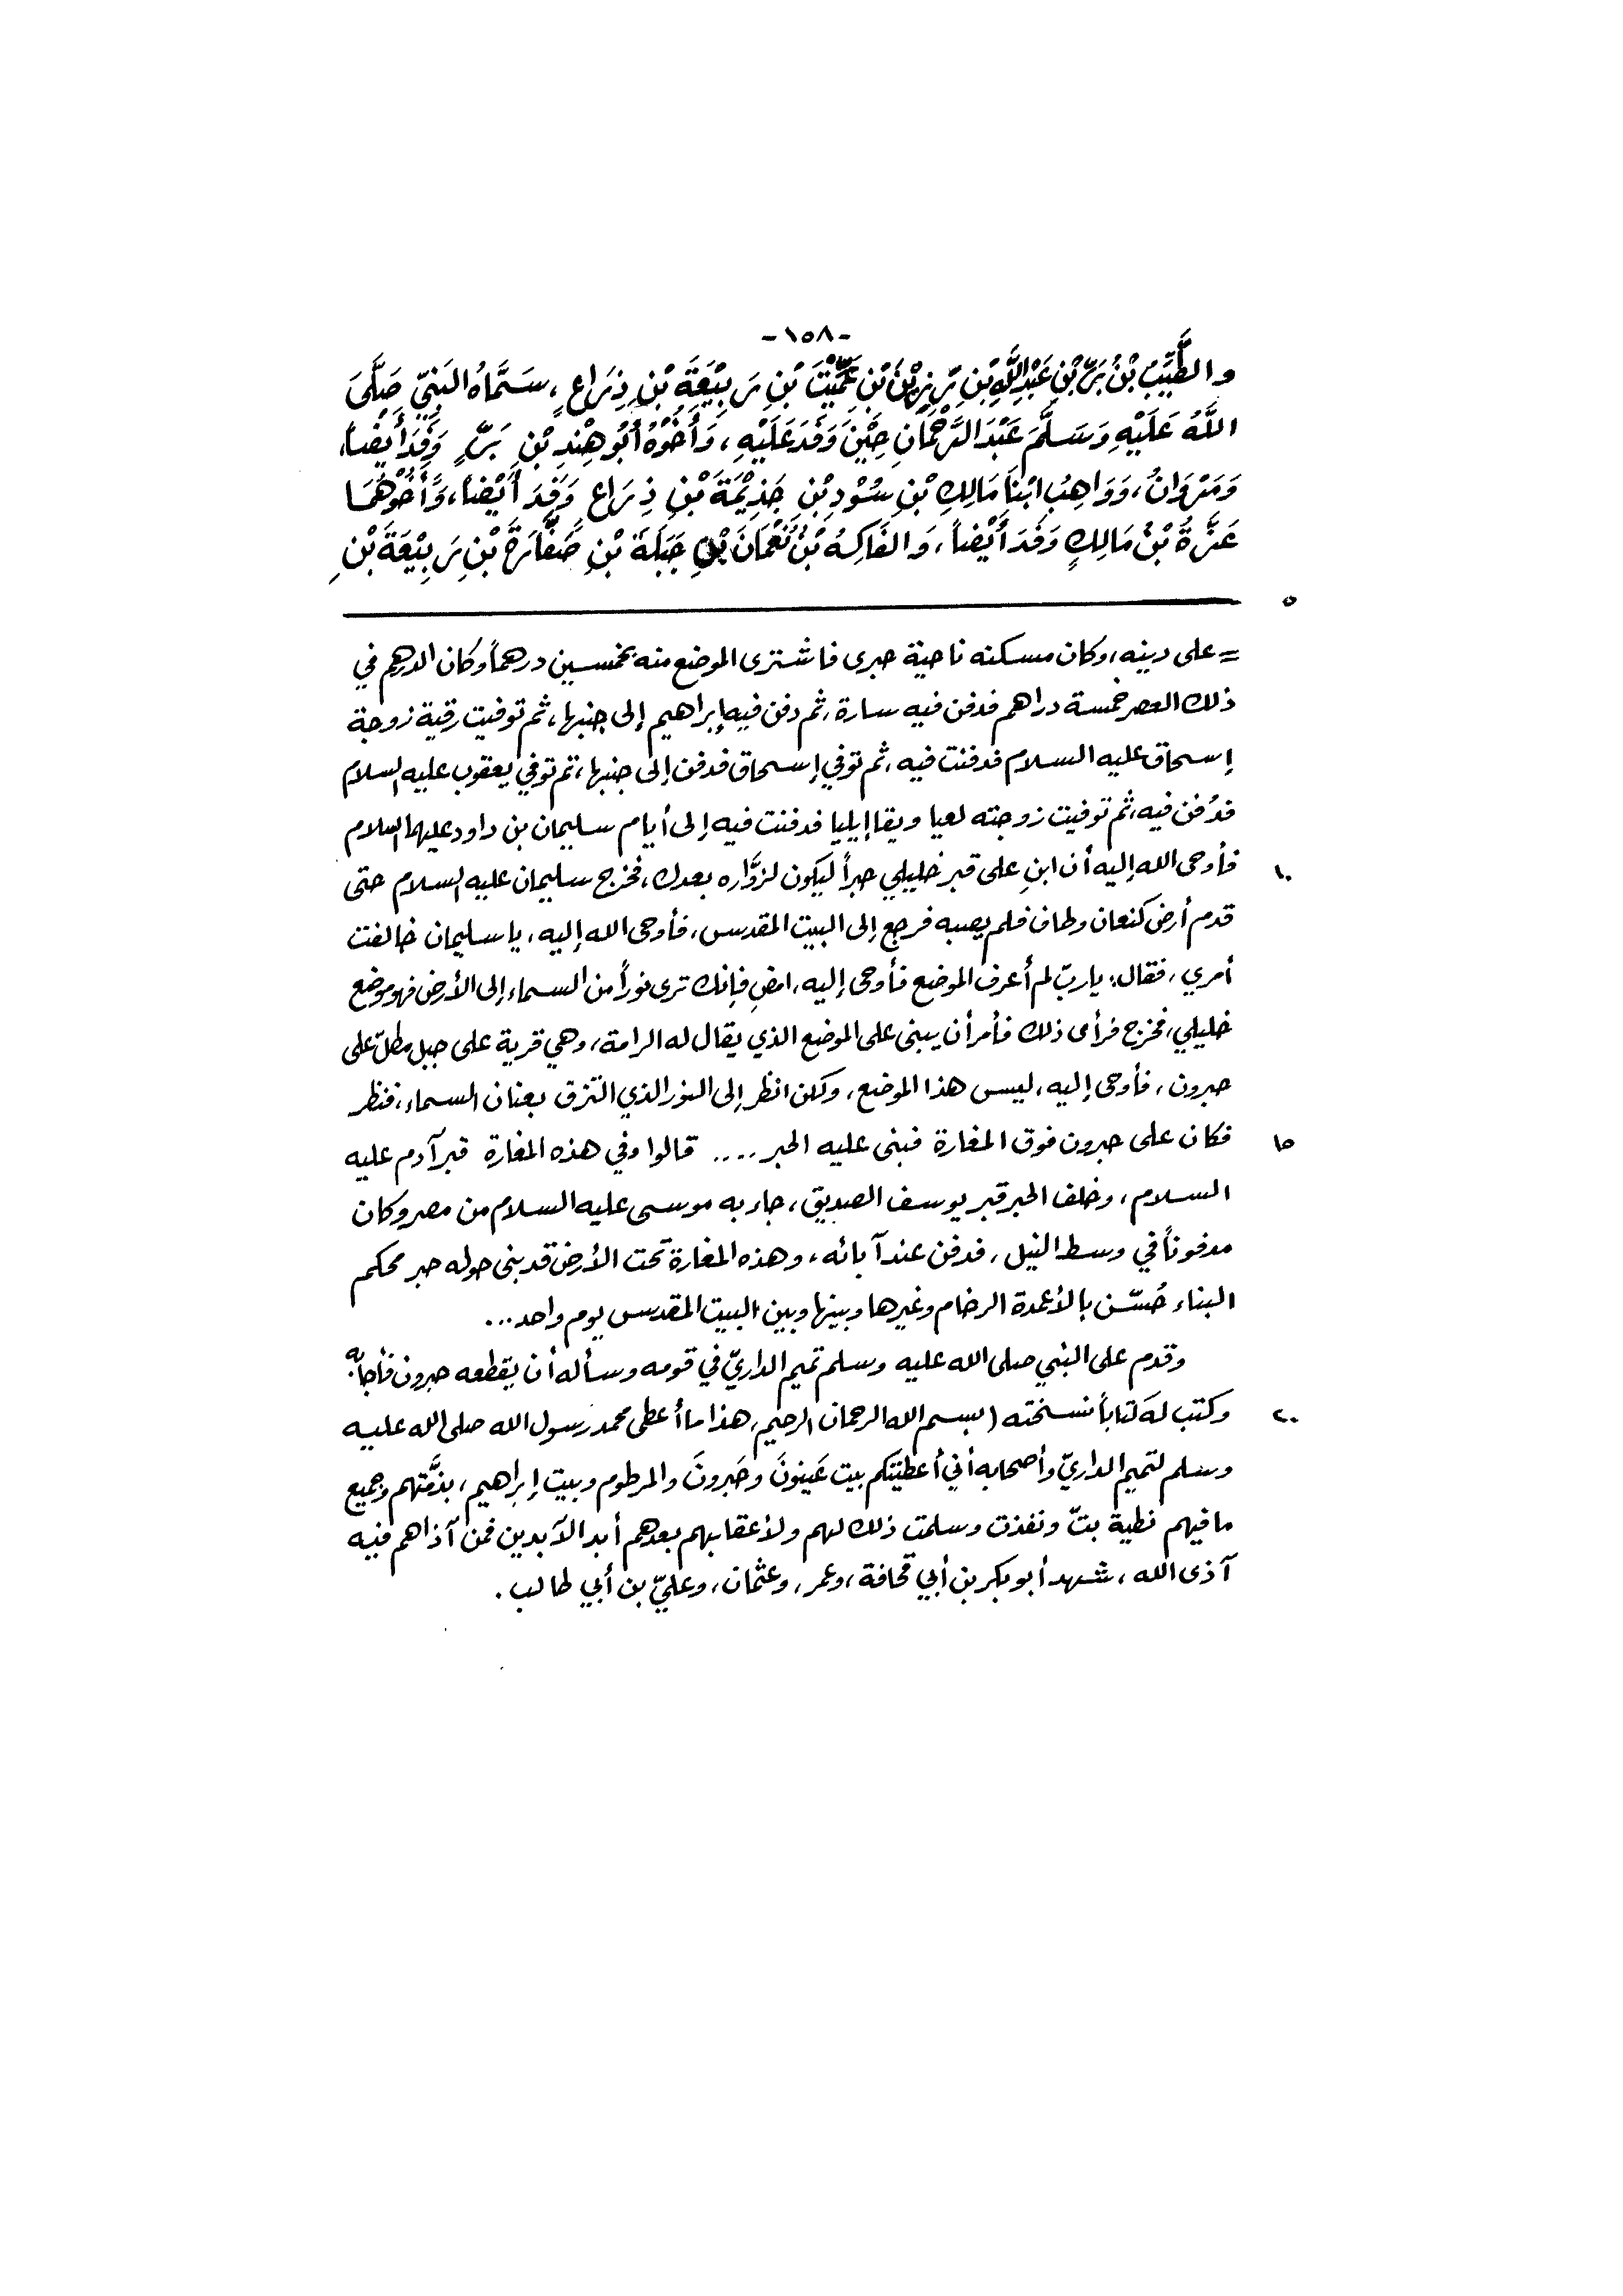 -١٥٨-
والطَّيِّبُ بْنُ بَرِّ بْنِ عَبْدِ اللَّهِ بْنِ رَزِينَ بْنِ عِمِّيْتَ بْنِ رَبِيْعَةَ بْنِ ذِرَاعٍ، سَمَّاهُ النَبِيّ صَلَّىَ
اللَّهُ عَلَيْهِ وَسَلَّمَ عَبْدَ الرَّحْمَانِ حِيْنَ وَفَدَ عَلَيْهِ، وَأَخُوْهُ أَبُو هِنْدِ بْنِ بَرٍّ وَفَدَ أَيْضاً،
وَمَرْوَانُ، وَوَاهِبُ ابْنَا مَالِكِ بْنِ سُوْدِ بْنِ جَذِيْمَةَ بْنِ ذِرَاعٍ وَفَدَ أَيْضاً، وَأَخُوْهُمَا
عَزَّةُ بْنُ مَالِكٍ وَفَدَ أَيْضاً، وَالفَاكِهُ بْنُ نُعْمَانَ بْنِ جَبَلَةَ بْنِ صَفَّارَةَ بْنِ رَبِيْعَةَ بْنِ
٥
= على دينه، وكان مسكنه ناحية حبرى فاشترى الموضع منه بخمسين درهماً وكان الدرهم في
ذلك العصر خمسة دراهم فدفن فيه سارة، ثم دفن فيه إبراهيم إلى جنبها، ثم توفيت رقية زوجة
إسحاق عليه السلام فدفنت فيه، ثم توفي إسحاق فدفن إلى جنبها، ثم توفي يعقوب عليه السلام
فدُفن فيه، ثم توفيت زوجته لعيا ويقا إيليا فدفنت فيه إلى أيام سليمان بن داود عليهما السلام
فأوحى الله إليه أن ابنِ على قبر خليلي حبراً ليكون لزوَّاره بعدك، فخرج سليمان عليه السلام حتى ١٠
قدم أرض كنعان وطاف فلم يصبه فرجع إلى البيت المقدس، فأوحى الله إليه، يا سليمان خالفت
أمري، فقال: ياربّ لم أعرف الموضع فأوحى إليه، امضِ فإنك ترى نوراً من السماء إلى الأرض فهو موضع
خليلي، فخرج فرأى ذلك فأمر أن يبنى على الموضع الذي يقال له الرامة، وهي قرية على جبل مطلّ على
حبرون، فأوحى إليه، ليس هذا الموضع، ولكن انظر إلى النور الذي التزق بعنان السماء، فنظر
فكان على حبرون فوق المغارة فبنى عليه الحبر .... قالوا وفي هذه المغارة قبر آدم عليه ١٥
السلام، وخلف الحبر قبر يوسف الصديق، جاء به موسى عليه السلام من مصر وكان
مدفوناً في وسط النيل، فدفن عند آبائه، وهذه المغارة تحت الأرض قد بنى حوله حبر محكم
البناء حُسّن بالأعمدة الرخام وغيرها وبينها وبين البيت المقدس يوم واحد...
وقدم على النبي صلى الله عليه وسلم تميم الداريّ في قومه وسأله أن يقطعه حبرون فأجابه
وكتب له كتاباً نسخته (بسم الله الرحمان الرحيم، هذا ما أعطى محمد رسول الله صلى الله عليه ٢٠
وسلم لتميم الداريّ وأصحابه أني أعطيتكم بيت عَينونَ وحَبرونَ والمرطوم وبيت إبراهيم، بذمَّتهم وجميع
ما فيهم نطية بتّ ونفذت وسلمت ذلك لهم ولأعقابهم بعدهم أبد الآبدين فمن آذاهم فيه
آذى الله، شهد أبو بكر بن أبي قحافة، وعمر، وعثمان، وعليّ بن أبي طالب.